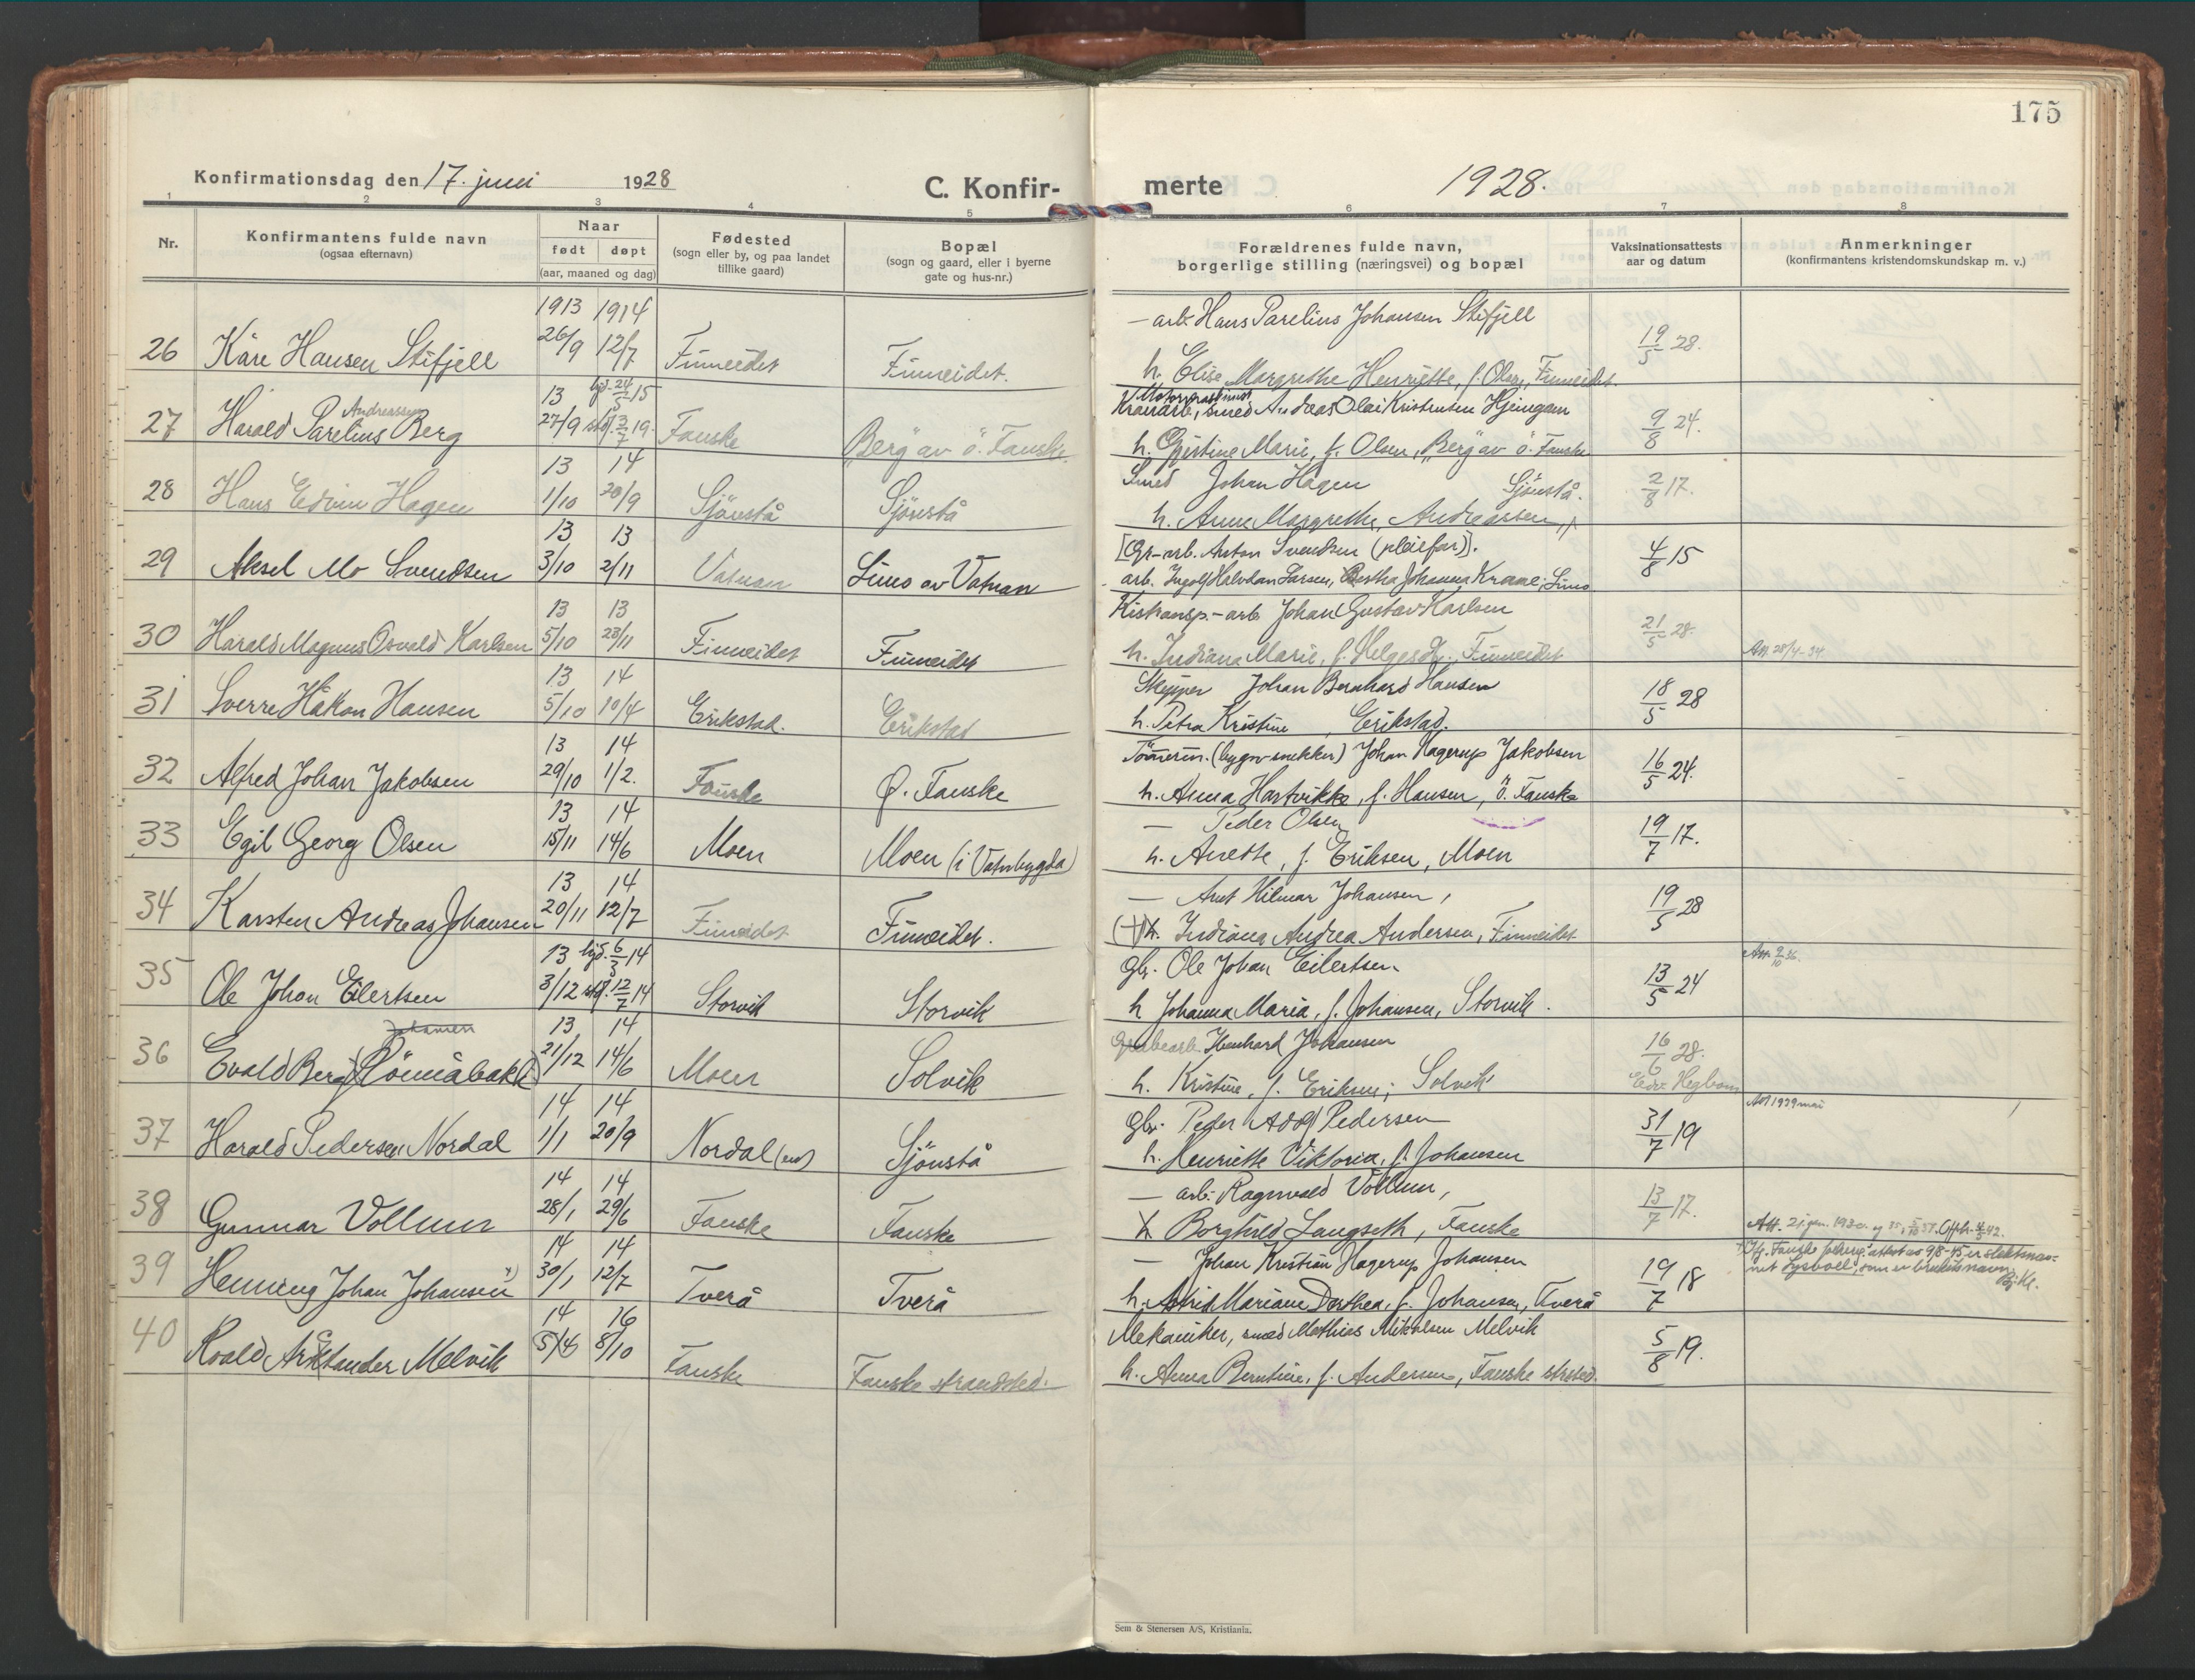 175
Konfirmationsdag den 17. juni 1928
C. Konfir-
merte
1928.
1 2 3 4 5 6 7 8
Nr.
Konfirmantens fulde navn
(ogsaa efternavn)
Naar
født døpt
(aar, maaned og dag)
Fødested
(sogn eller by, og paa landet
tillike gaard)
Bopæl
(sogn og gaard, eller i byerne
gate og hus-nr.)
Forældrenes fulde navn,
borgerlige stilling (næringsvei) og bopæl
Vaksinationsattests
aar og datum
Anmerkninger
(konfirmantens kristendomskundskap m. v.)
1913 1914
26 Kåre Hansen Stifjell 26/9 12/7 Finneidet Finneidet.
— arb. Hans Parelius Johansen Stifjell
h. Elise Margrethe Henriette, f. Olsen, Finneidet. 19/5 28.
Andreassen
13 hjd. 24/5 15
27 Harald Parelius Berg 27/9 std. 3/7 19. Fauske "Berg" av ö. Fauske
Kranarb., smed Andreas Olai Kristensen Hjemgam
h. Kristine Marie, f. Olsen, "Berg" av ö. Fauske 9/8 24.
13 14
28 Hans Edvin Hagen 1/10 20/9 Sjönstå Sjönstå
Smed Johan Hagen Sjönstå.
h. Anne Margrethe Andreassen 2/8 17.
13 13
29 Aksel Mo Svendsen 3/10 2/11 Vatnan Limo av Vatnan
[Gr-arb. Anton Svendsen (pleiefar)].
arb. Ingolf Halvdan Larsen, Bertha Johanna Kraml; Limo 4/8 15
13 13
30 Harald Magnus Osvald Karlsen 5/10 23/11 Finneidet Finneidet
Kistransp.-arb. Johan Gustav Karlsen
h. Indiana Marie, f. Helgesdtr., Finneidet 21/5 28. Att. 28/4-34.
13 14
31 Sverre Håkon Hansen 5/10 10/4 Erikstad. Erikstad
Skipper Johan Bernhard Hansen
h. Petra Kristine, Erikstad. 18/5 28
13 14
32 Alfred Johan Jakobsen 29/10 1/2. Fauske Ø. Fauske
Tömerm. (bygn-snekker) Johan Hagerup Jakobsen
h. Anna Hartvikke, f. Hansen, ö. Fauske 16/5 24.
13 14
33 Egil Georg Olsen 15/11 14/6 Moen Moen (i Vatnbygda)
— Peder Olsen
h. Anette, f. Eriksen, Moen 19/7 17.
13 14
34 Karsten Andreas Johansen 20/11 12/7 Finneidet Finneidet.
— Arnt Hilmar Johansen,
(+) h. Indiana Andrea Andersen, Finneidet 19/5 28
13 hjd. 6/3 14
35 Ole Johan Eilertsen 3/12 std. 12/7 14 Storvik Storvik
Gbr. Ole Johan Eilertsen.
h Johanna Maria, f. Johansen, Storvik. 13/5 24 Att. 2/10 36.
Johansen
13 14
36 Evald Berg (Rönnåbakk) 21/12 14/6 Moen Solvik
Grubearb. Ibenhard Johansen
h. Kristine, f. Eriksen; Solvik 16/6 28.
Edv. Hegbom
14 14
37 Harald Pedersen Nordal 1/1 20/9 Nordal Sjönstå
Gbr. Peder Adolf Pedersen
h. Henriette Viktoria, f. Johansen 31/7 19 Att 1939 mai
14 14
38 Gunnar Vollum 28/1 29/6 Fauske Fauske
— arb. Ragnvald Vollum,
h Borghild Langseth, Fauske 13/7 17.
14 14
39 Henning Johan Johansen x) 30/1 12/7 Tverå Tverå
— Johan Kristian Hagerup Johansen
h. Astrid Mariane Dorthea, f. Johansen, Tverå 19/7 18
14 16
40 Roald Arktander Melvik 5/4 8/10 Fauske Fauske strandsted.
Mekaniker, smed Mathias Mikalsen Melvik
h. Anna Berntine, f. Andersen, Fauske strsted. 5/8 19.
Sem & Stenersen A/S, Kristiania.